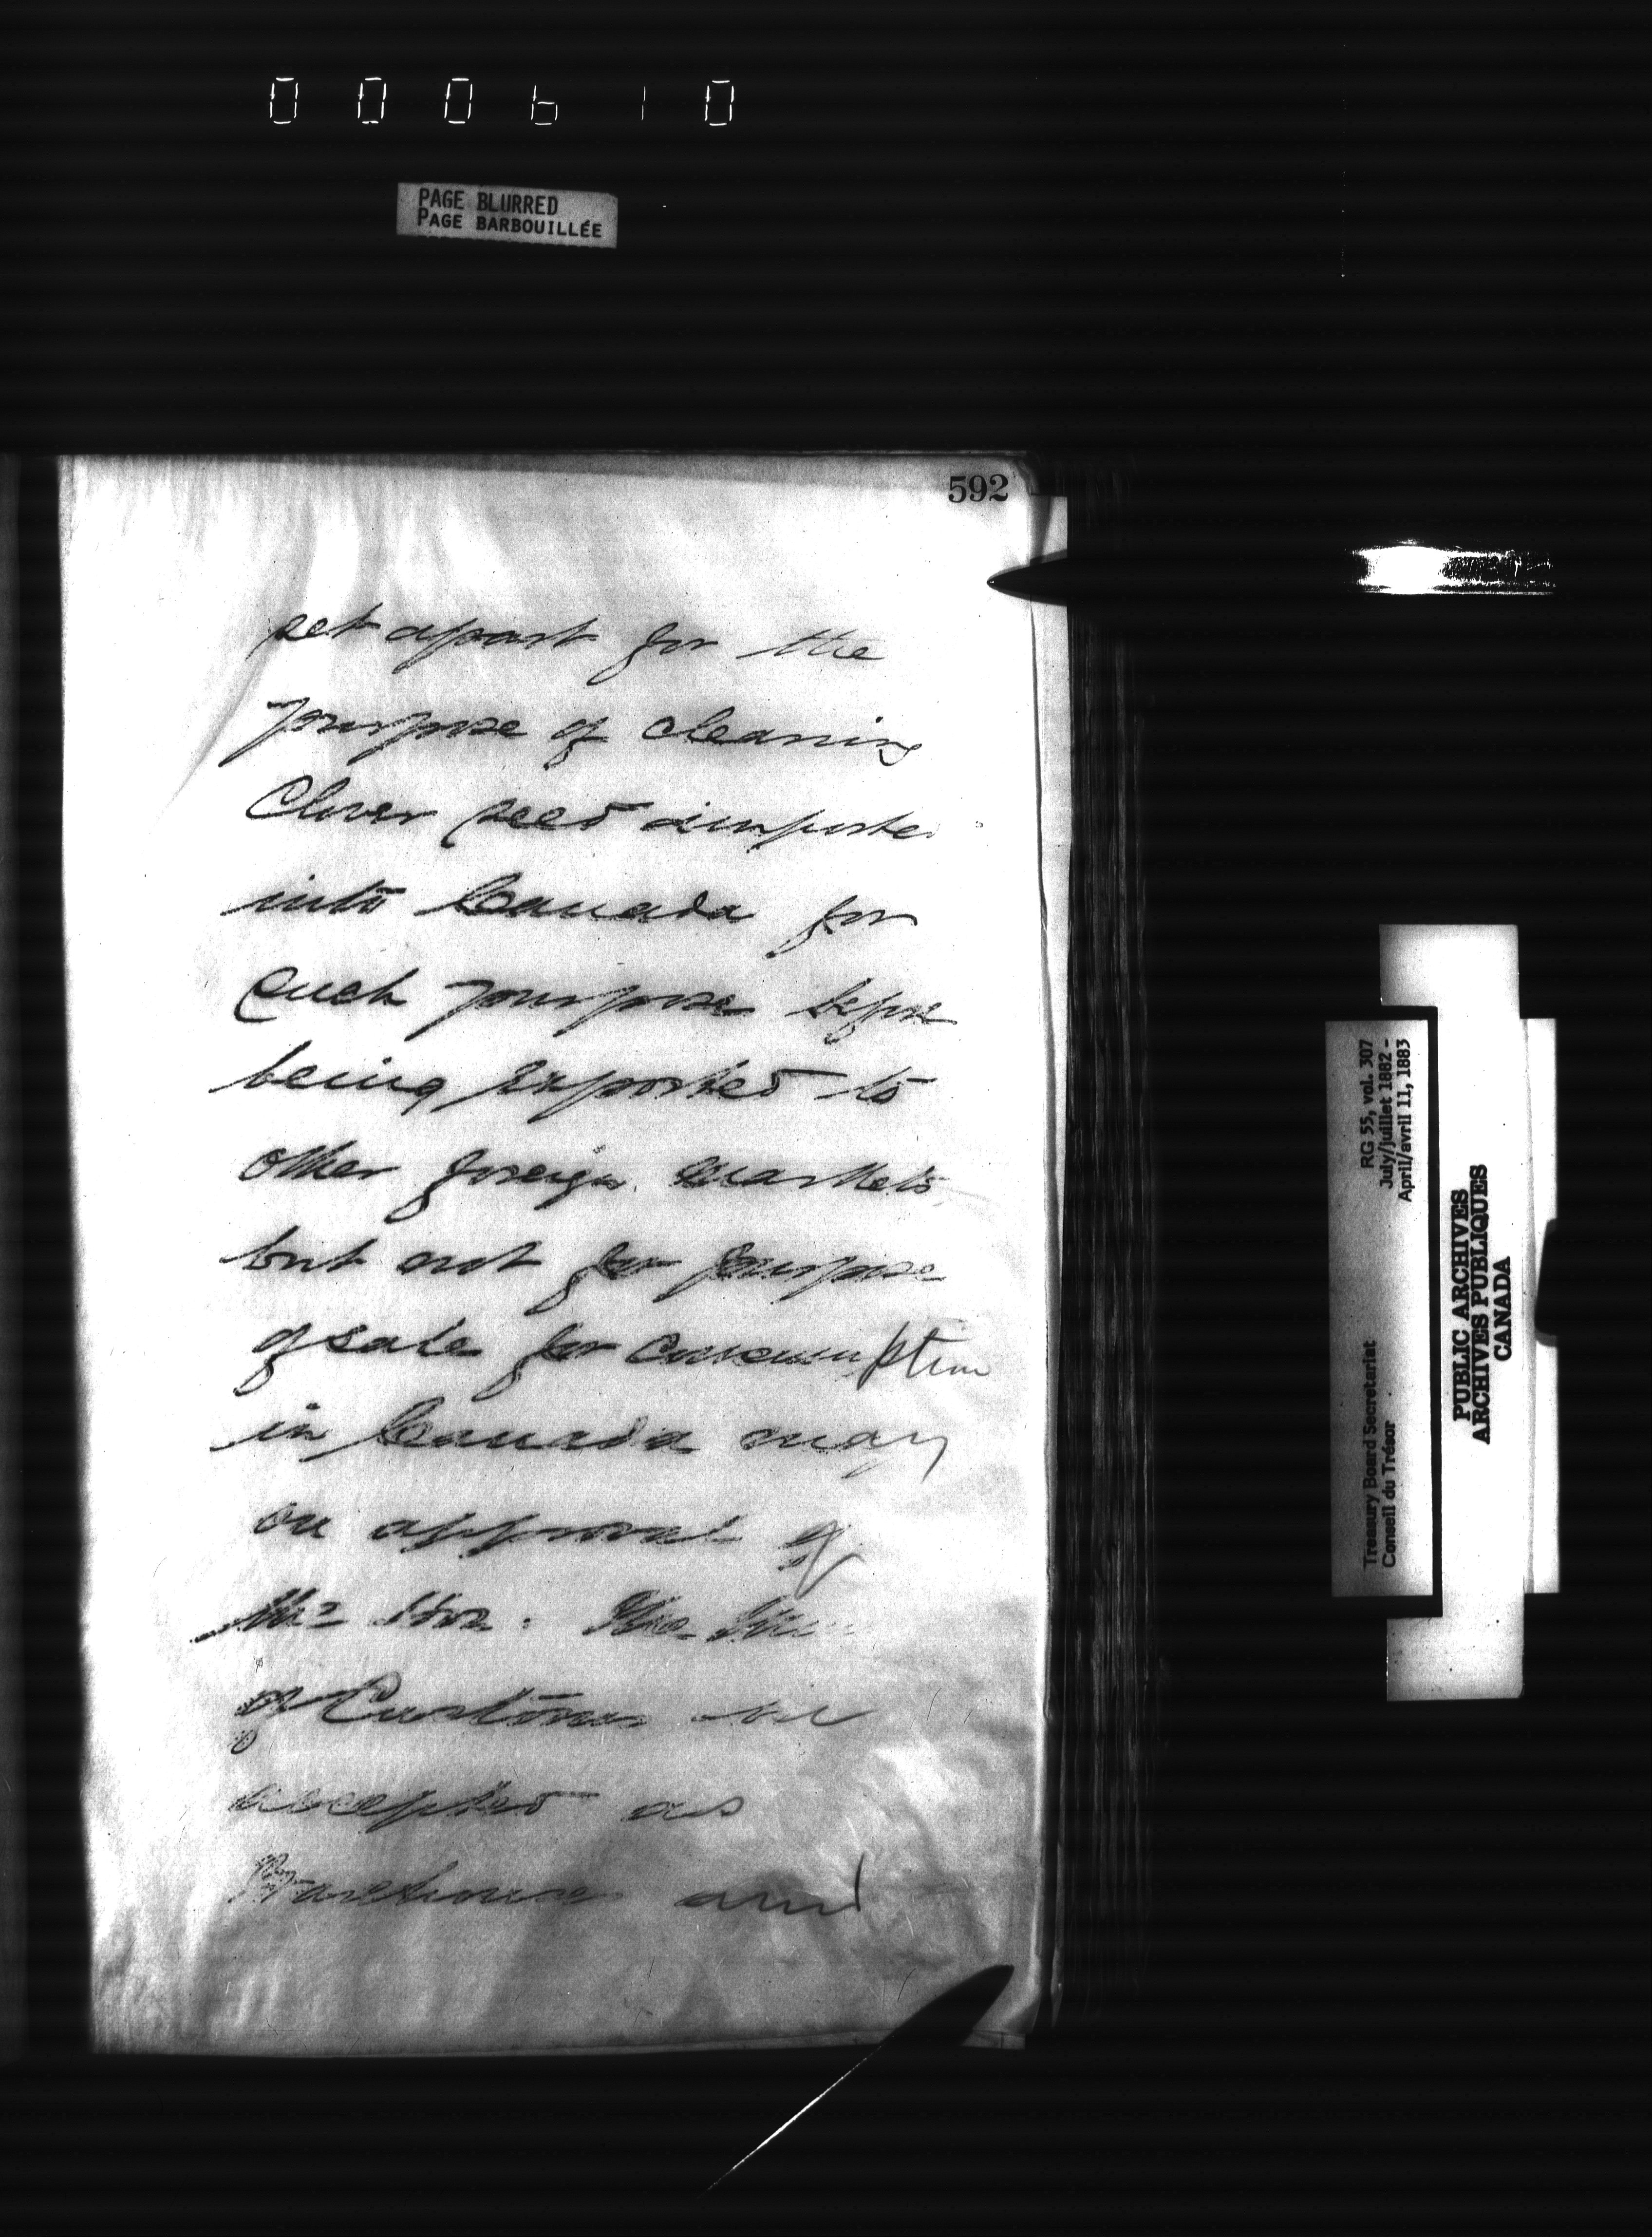 000610
PAGE BLURRED
PAGE BARBOUILLÉE
592
set apart for the
purpose of cleaning
Clover seed importe
into Canada for
such purpose before
being exported to
other foreign markets
but not for purpose
of sale for Consumption
in Canada may
on approval of
the Hon. the
of Customs be
accepted as
Warehouses and
RG 55, vol. 307
July/juillet 1882 -
April/avril 11, 1883
Treasury Board Secretariat
Conseil du Trésor
PUBLIC ARCHIVES
ARCHIVES PUBLIQUES
CANADA